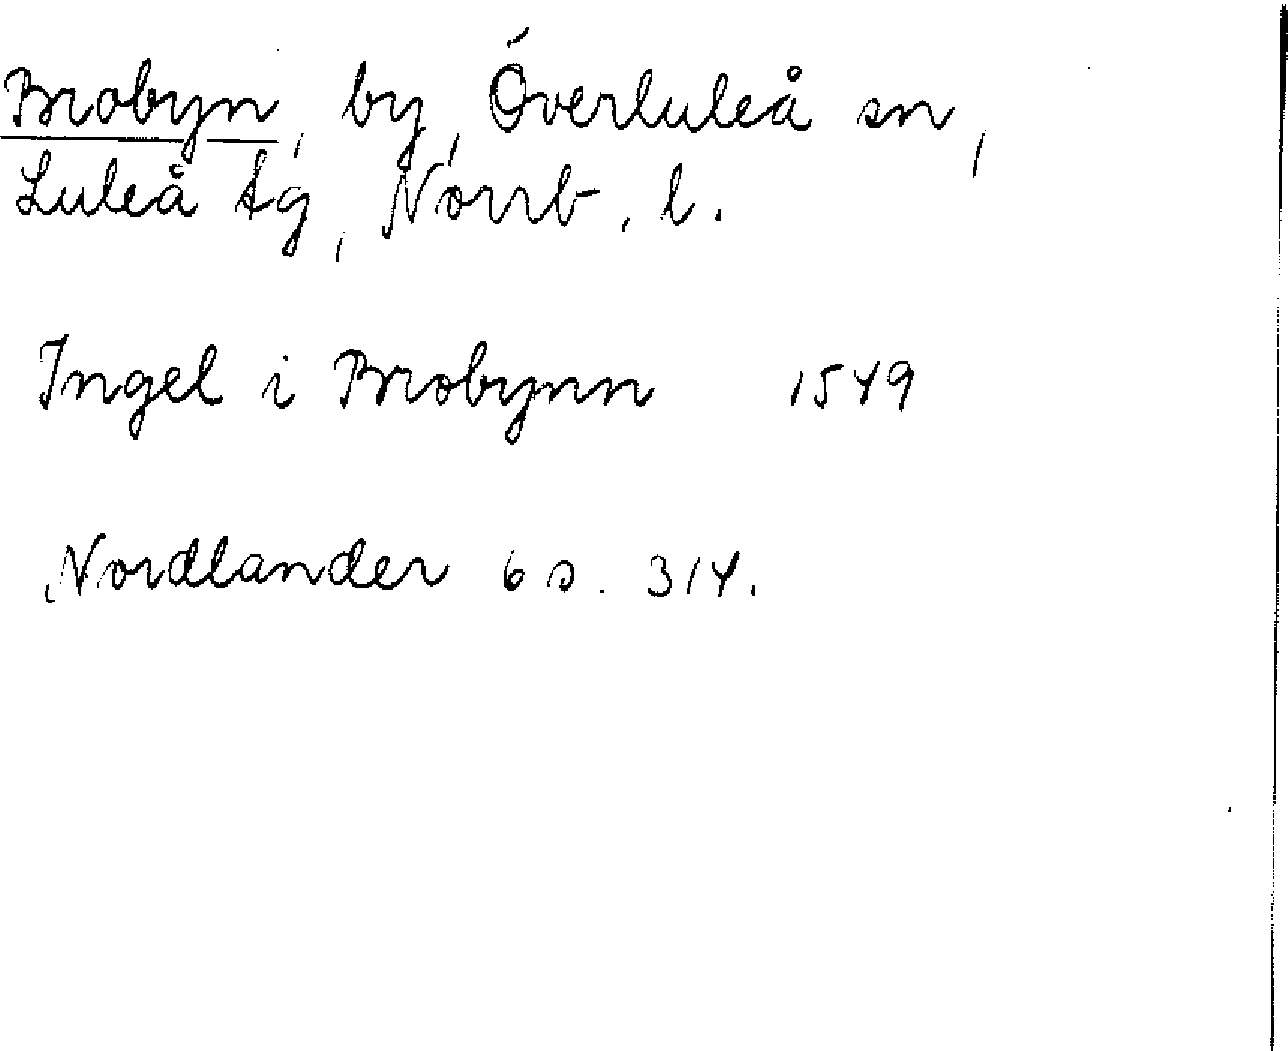 Brobyn, by, Överluleå sn,
Luleå tg, Norrb. l.
Ingel i Brobynn 1549
Nordlander 6 s. 314.